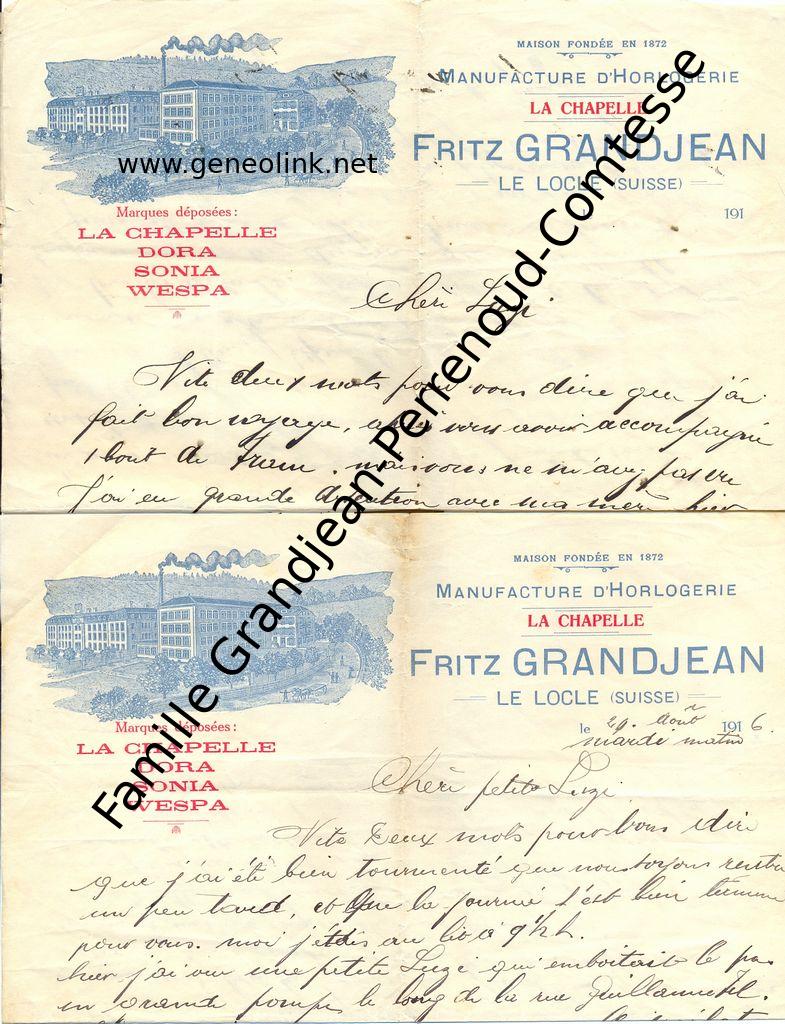 MAISON FONDÉE EN 1872
MANUFACTURE D'HORLOGERIE
LA CHAPELLE
FRITZ GRANDJEAN
LE LOCLE (SUISSE)
191
www.geneolink.net
Marques déposées:
LA CHAPELLE
DORA
SONIA
WESPA
Chéri Luzi.
Vite deux mots pour vous dire que j'ai
fait bon voyage, vous avoir accompagné
1 bout de tram. mais vous ne m'avez pas vu
J'ai eu grande avec ma mère hier
Famille Grandjean-Perrenoud-Comtesse
MAISON FONDÉE EN 1872
MANUFACTURE D'HORLOGERIE
LA CHAPELLE
FRITZ GRANDJEAN
LE LOCLE (SUISSE)
le 29. Août 1916.
mardi matin
Marques déposées:
LA CHAPELLE
DORA
SONIA
WESPA
Chéri petite Luzi.
Vite deux mots pour vous dire
que j'ai été bien tourmenté que nous soyons
un peu tard, et que la journée s'est bien
pour vous. moi j'étais au lit à 9½ h.
hier j'ai vu une petite Luzi qui emboitait le pas
en grande pompe le long de la rue